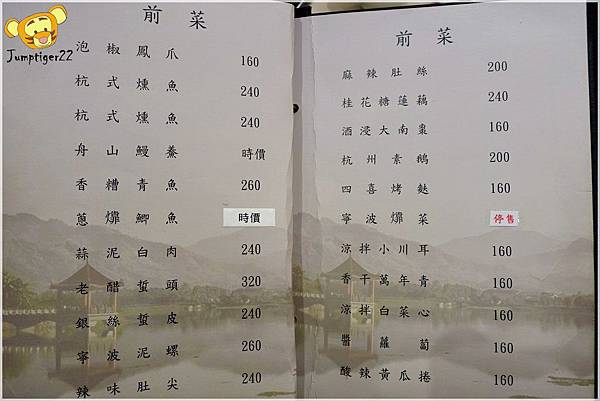 Jumptiger22
前菜
泡椒鳳爪 160
杭式燻魚 240
杭式燻魚 240
舟山鰻鯗 時價
香糟青魚 260
蔥㸆鯽魚 時價
蒜泥白肉 240
老醋蜇頭 320
銀絲蜇皮 240
寧波泥螺 260
辣味肚尖 240
前菜
麻辣肚絲 200
桂花糖蓮藕 240
酒浸大南棗 160
杭州素鵝 200
四喜烤麩 160
寧波㸆菜 停售
涼拌小川耳 160
香干萬年青 160
涼拌白菜心 160
醬蘿蔔 160
酸辣黃瓜捲 160